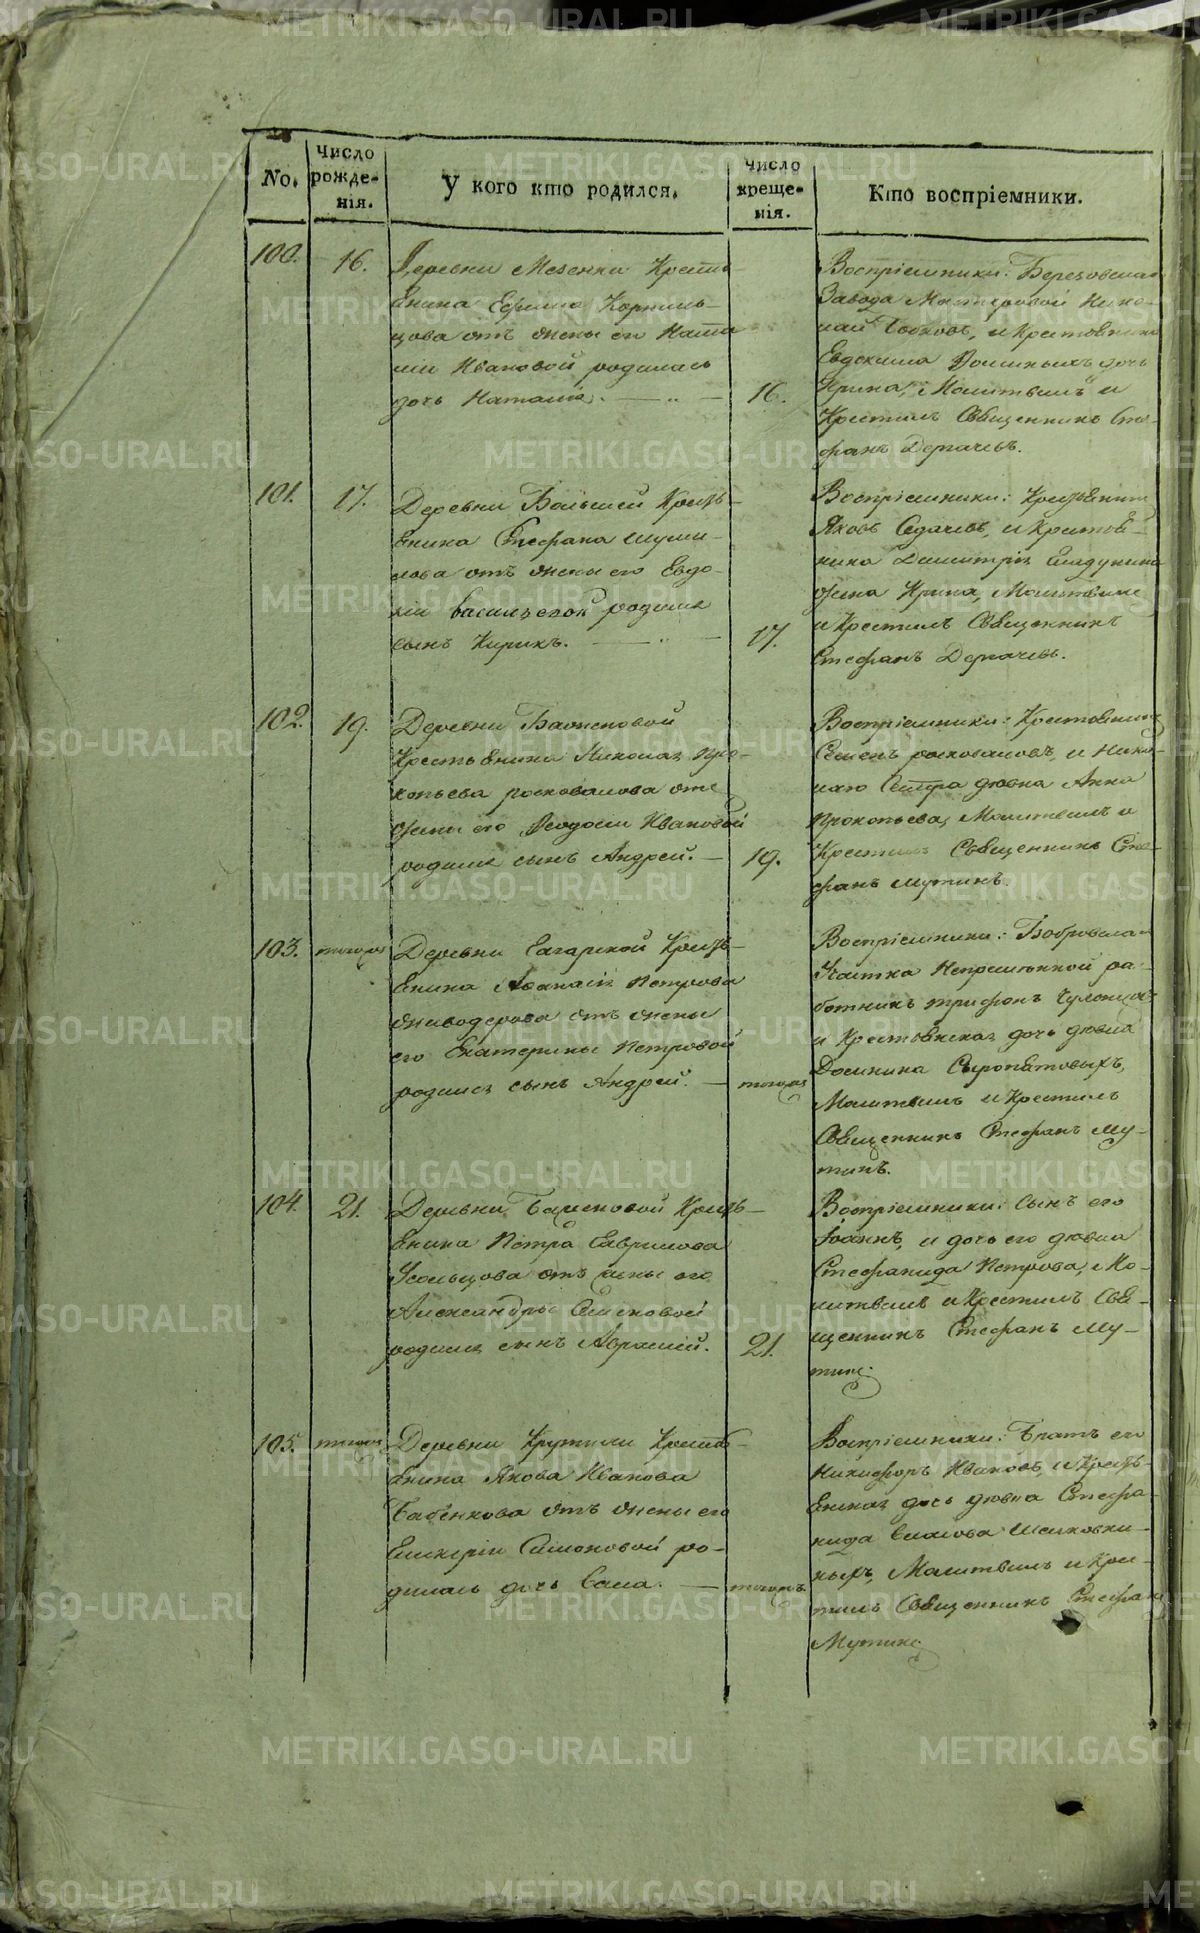 No.
Число рожде-
нія.
У кого кто родился.
Число
креще-
нія.
Кто воспріемники.
100.
16.
Деревни Мезенки Кресть-
янина Ефима
цова отъ жены его
Ивановой родилась
дочь Наталія.
16.
Воспріемники: Березовскаго
Завода Мастеровой Нико-
лай и Крестьянина
Евдокима дочь
Ирина, Молитвилъ и
Крестилъ Священникъ Сте-
фанъ Дерпачевъ.
101.
17.
Деревни Большей Кресть-
янина Стефана Шуми-
лова отъ жены его Евдо-
кіи Васильевой родился
сынъ Кирикъ.
17.
Воспріемники: Крестьянинъ
Яковъ Седачевъ, и Крестья-
нина Димитрія
жена Ирина, Молитвилъ
и Крестилъ Священникъ
Стефанъ Дерпачевъ.
102.
19.
Деревни Баженовой
Крестьянина Николая Про-
копьева Росковалова отъ
жены его Ѳеодосьи Ивановой
родился сынъ Андрей.
19.
Воспріемники: Крестьянинъ
Семенъ Росковаловъ, и Нико-
лаго Сестра дѣвка Анна
Прокопьева, Молитвилъ и
Крестилъ Священникъ Сте-
фанъ Мутинъ.
103.
тогожъ
Деревни Гагарской Кресть-
янина Аѳанасія Петрова
Живодерова отъ жены
его Екатерины Петровой
родился сынъ Андрей.
тогожъ
Воспріемники: Бобровскаго
Участка Непремѣнной ра-
ботникъ Трифонъ
и Крестьянская дочь дѣвка
Домникa Сыропятовыхъ,
Молитвилъ и Крестилъ
Священникъ Стефанъ Му-
тинъ.
104.
21.
Деревни Баженовой Кресть-
янина Петра Гаврилова
Усольцова отъ жены его
Александры Семеновой
родился сынъ Аврамій.
21.
Воспріемники: сынъ его
Іоаннъ, и дочь его дѣвка
Стефанида Петрова, Мо-
литвилъ и Крестилъ Свя-
щенникъ Стефанъ Му-
тинъ.
105.
тогожъ
Деревни Крутыхи Кресть-
янина Якова Иванова
Бабенкова отъ жены его
Гликеріи Симоновой ро-
дилась дочь
тогожъ
Воспріемники: Братъ его
Никифоръ Ивановъ, и Кресть-
янская дочь дѣвка Стефа-
нида
ныхъ, Молитвилъ и Крес-
тилъ Священникъ Стефанъ
Мутинъ.
METRIKI.GASO-URAL.RU